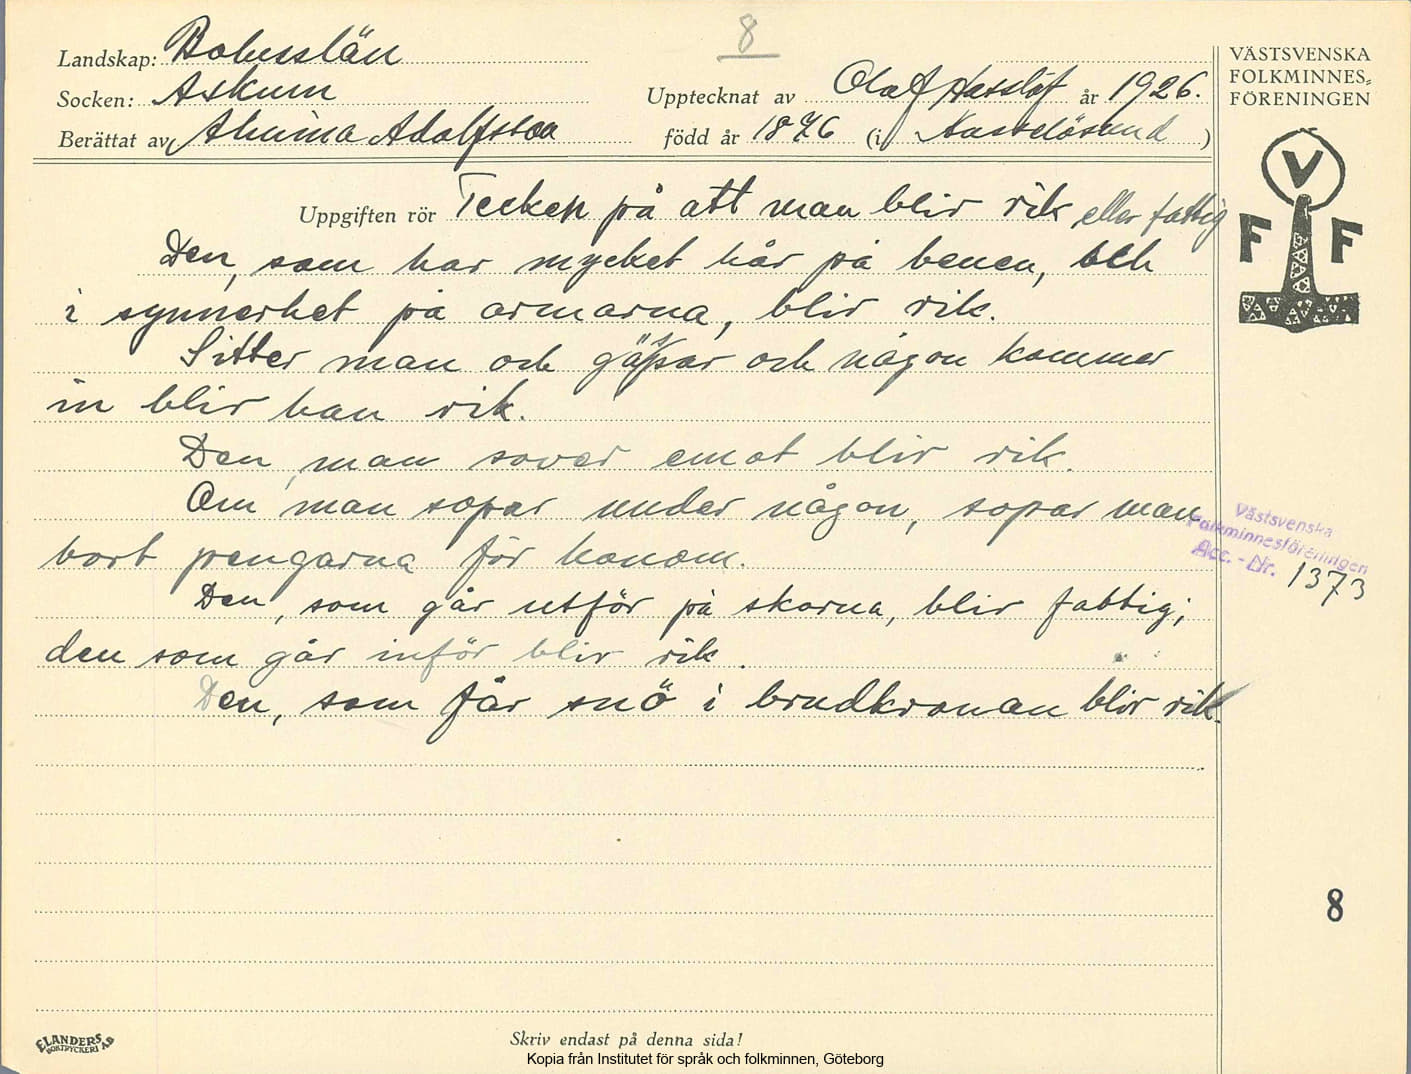 8
Landskap: Bohuslän
Socken: Askum
Upptecknat av Olof Hasslöf år 1926.
Berättat av Alvina Adolfsson född år 1876 (i Hasselösund)
VÄSTSVENSKA
FOLKMINNES-
FÖRENINGEN
V
F F
Uppgiften rör Tecken på att man blir rik eller fattig
Den, som har mycket hår på benen, och
i synnerhet på armarna, blir rik.
Sitter man och gäspar och någon kommer
in blir han rik.
Den, man sover emot blir rik.
Om man sopar under någon, sopar man
bort pengarna för honom.
Den, som går utför på skorna, blir fattig;
den som går inför blir rik.
Den, som får snö i brudkronan blir rik.
Västsvenska
Folkminnesföreningen
Acc.-Nr. 1373
8
ELANDERS
BOKTRYCKERI AB
Skriv endast på denna sida!
Kopia från Institutet för språk och folkminnen, Göteborg